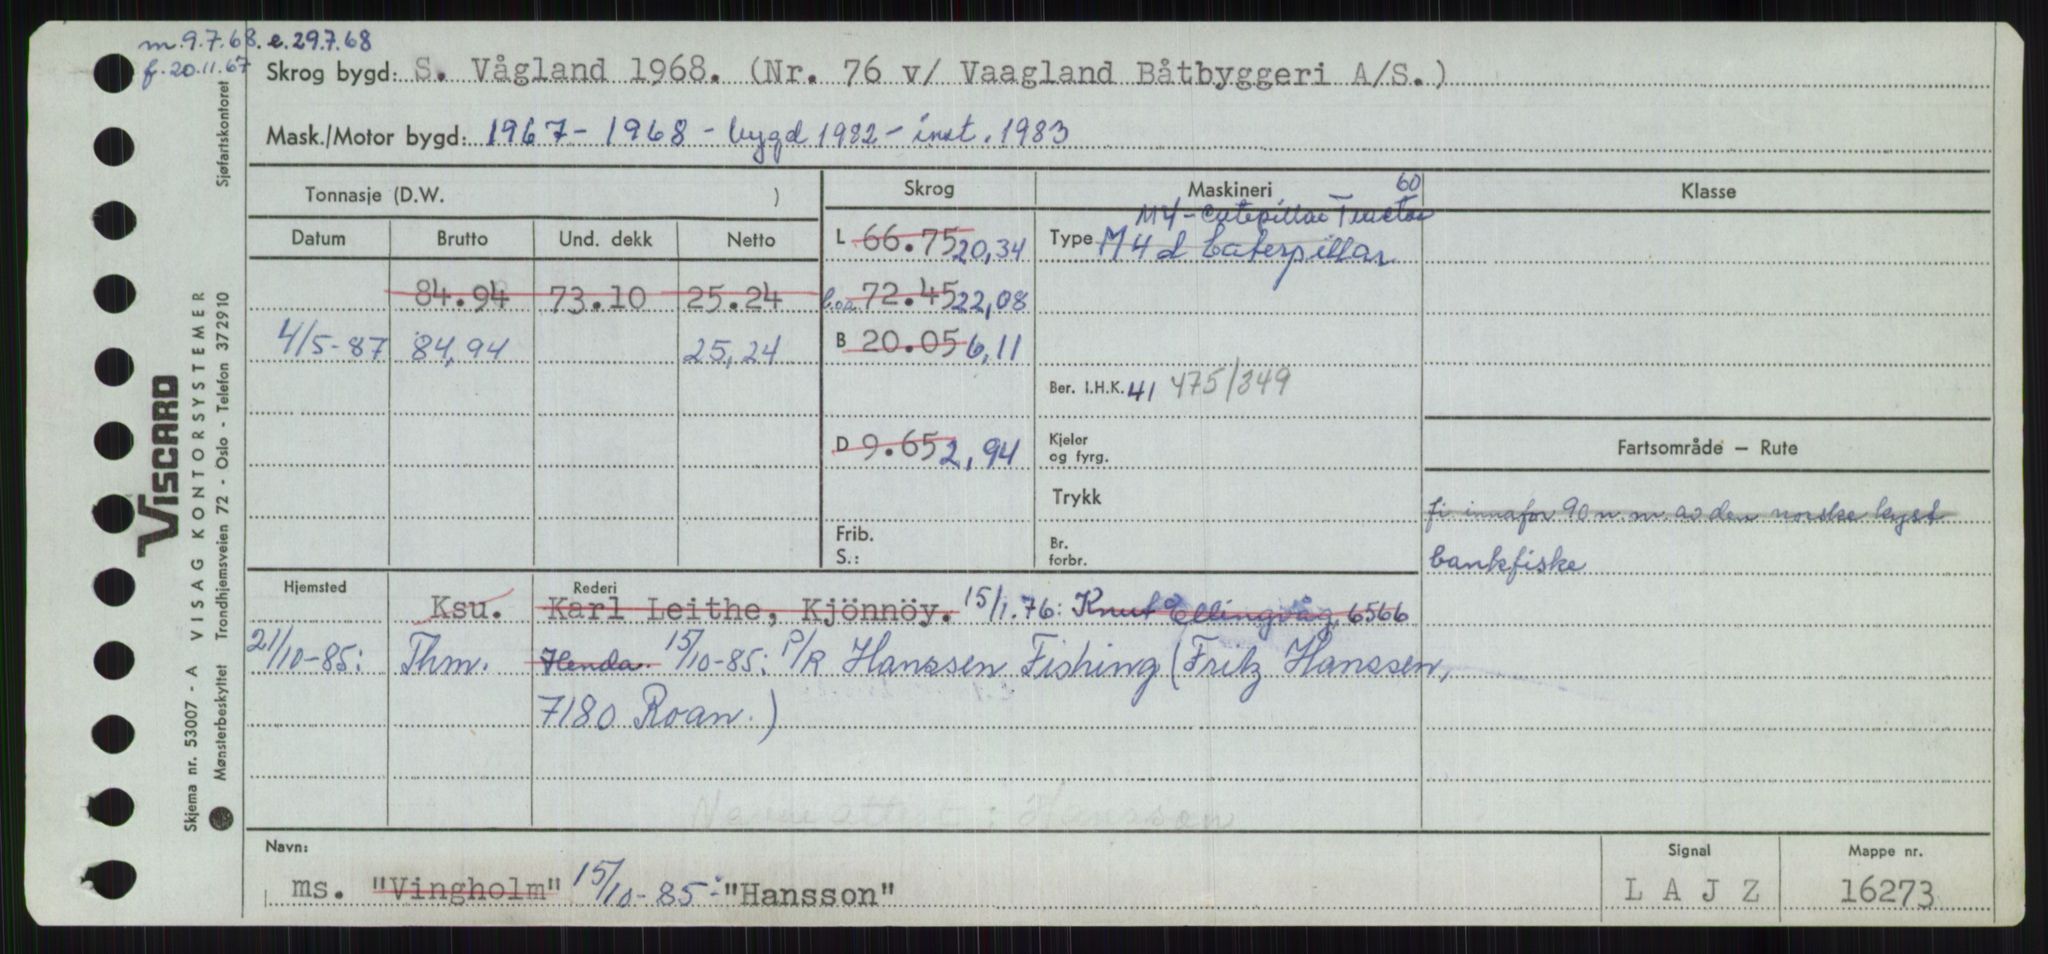 m.9.7.68. e.29.7.68
f.20.11.67
Skrog bygd: S. Vågland 1968. (Nr. 76 v/ Vaagland Båtbyggeri A/S.)
Mask./Motor bygd: 1967-1968 - bygd 1982 - inst. 1983
Tonnasje (D.W. )
Skrog
Maskineri
Klasse
Datum Brutto Und. dekk Netto
84.94 73.10 25.24
4/5-87 84,94 25,24
L 66.75 20,34
l.oa. 72.45 22,08
B 20.05 6,11
D 9.65 2,94
Frib.
S.:
60
M4-Catepillar Tractor
Type M4d Caterpillar
Ber. I.H.K. 41 475/349
Kjeler
og fyrg.
Trykk
Br.
forbr.
Fartsområde — Rute
fi innafor 90 n.m. av den norske kyst
bankfiske
Hjemsted
Rederi
Ksu. Karl Leithe, Kjönnöy. 15/1.76: Knut Ellingvåg, 6566
21/10-85: Thm. Henda. 15/10-85: P/R Hanssen Fishing (Fritz Hanssen,
7180 Roan.)
Navn:
ms. "Vingholm" 15/10-85: "Hansson"
Signal
L A J Z
Mappe nr.
16273
Sjøfartskontoret
VISCARD
VISAG KONTORSYSTEMER
Trondhjemsveien 72 - Oslo - Telefon 372910
Skjema nr. 53007 - A
Mønsterbeskyttet